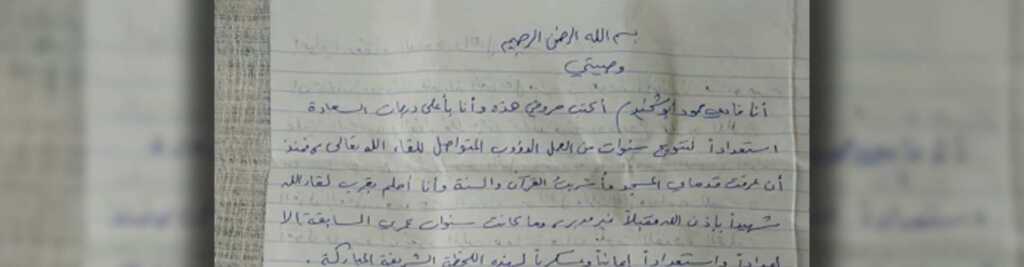 بسم الله الرحمن الرحيم
وصيتي
أنا فادي محمود أبو شخيدم أكتب حروفي هذه وأنا بأعلى درجات السعادة
استعداداً لتتويج سنوات من العمل الدؤوب المتواصل للقاء الله تعالى، فمنذ
أن عرفت قدماي المسجد وأشربت القرآن والسنة وأنا أحلم بقرب لقاء الله
شهيداً بإذن الله مقبلاً غير مدبر، وما كانت سنوات عمري السابقة إلا
إعداداً واستعداداً إيمانياً وعسكرياً لهذه اللحظة الشريفة المباركة.